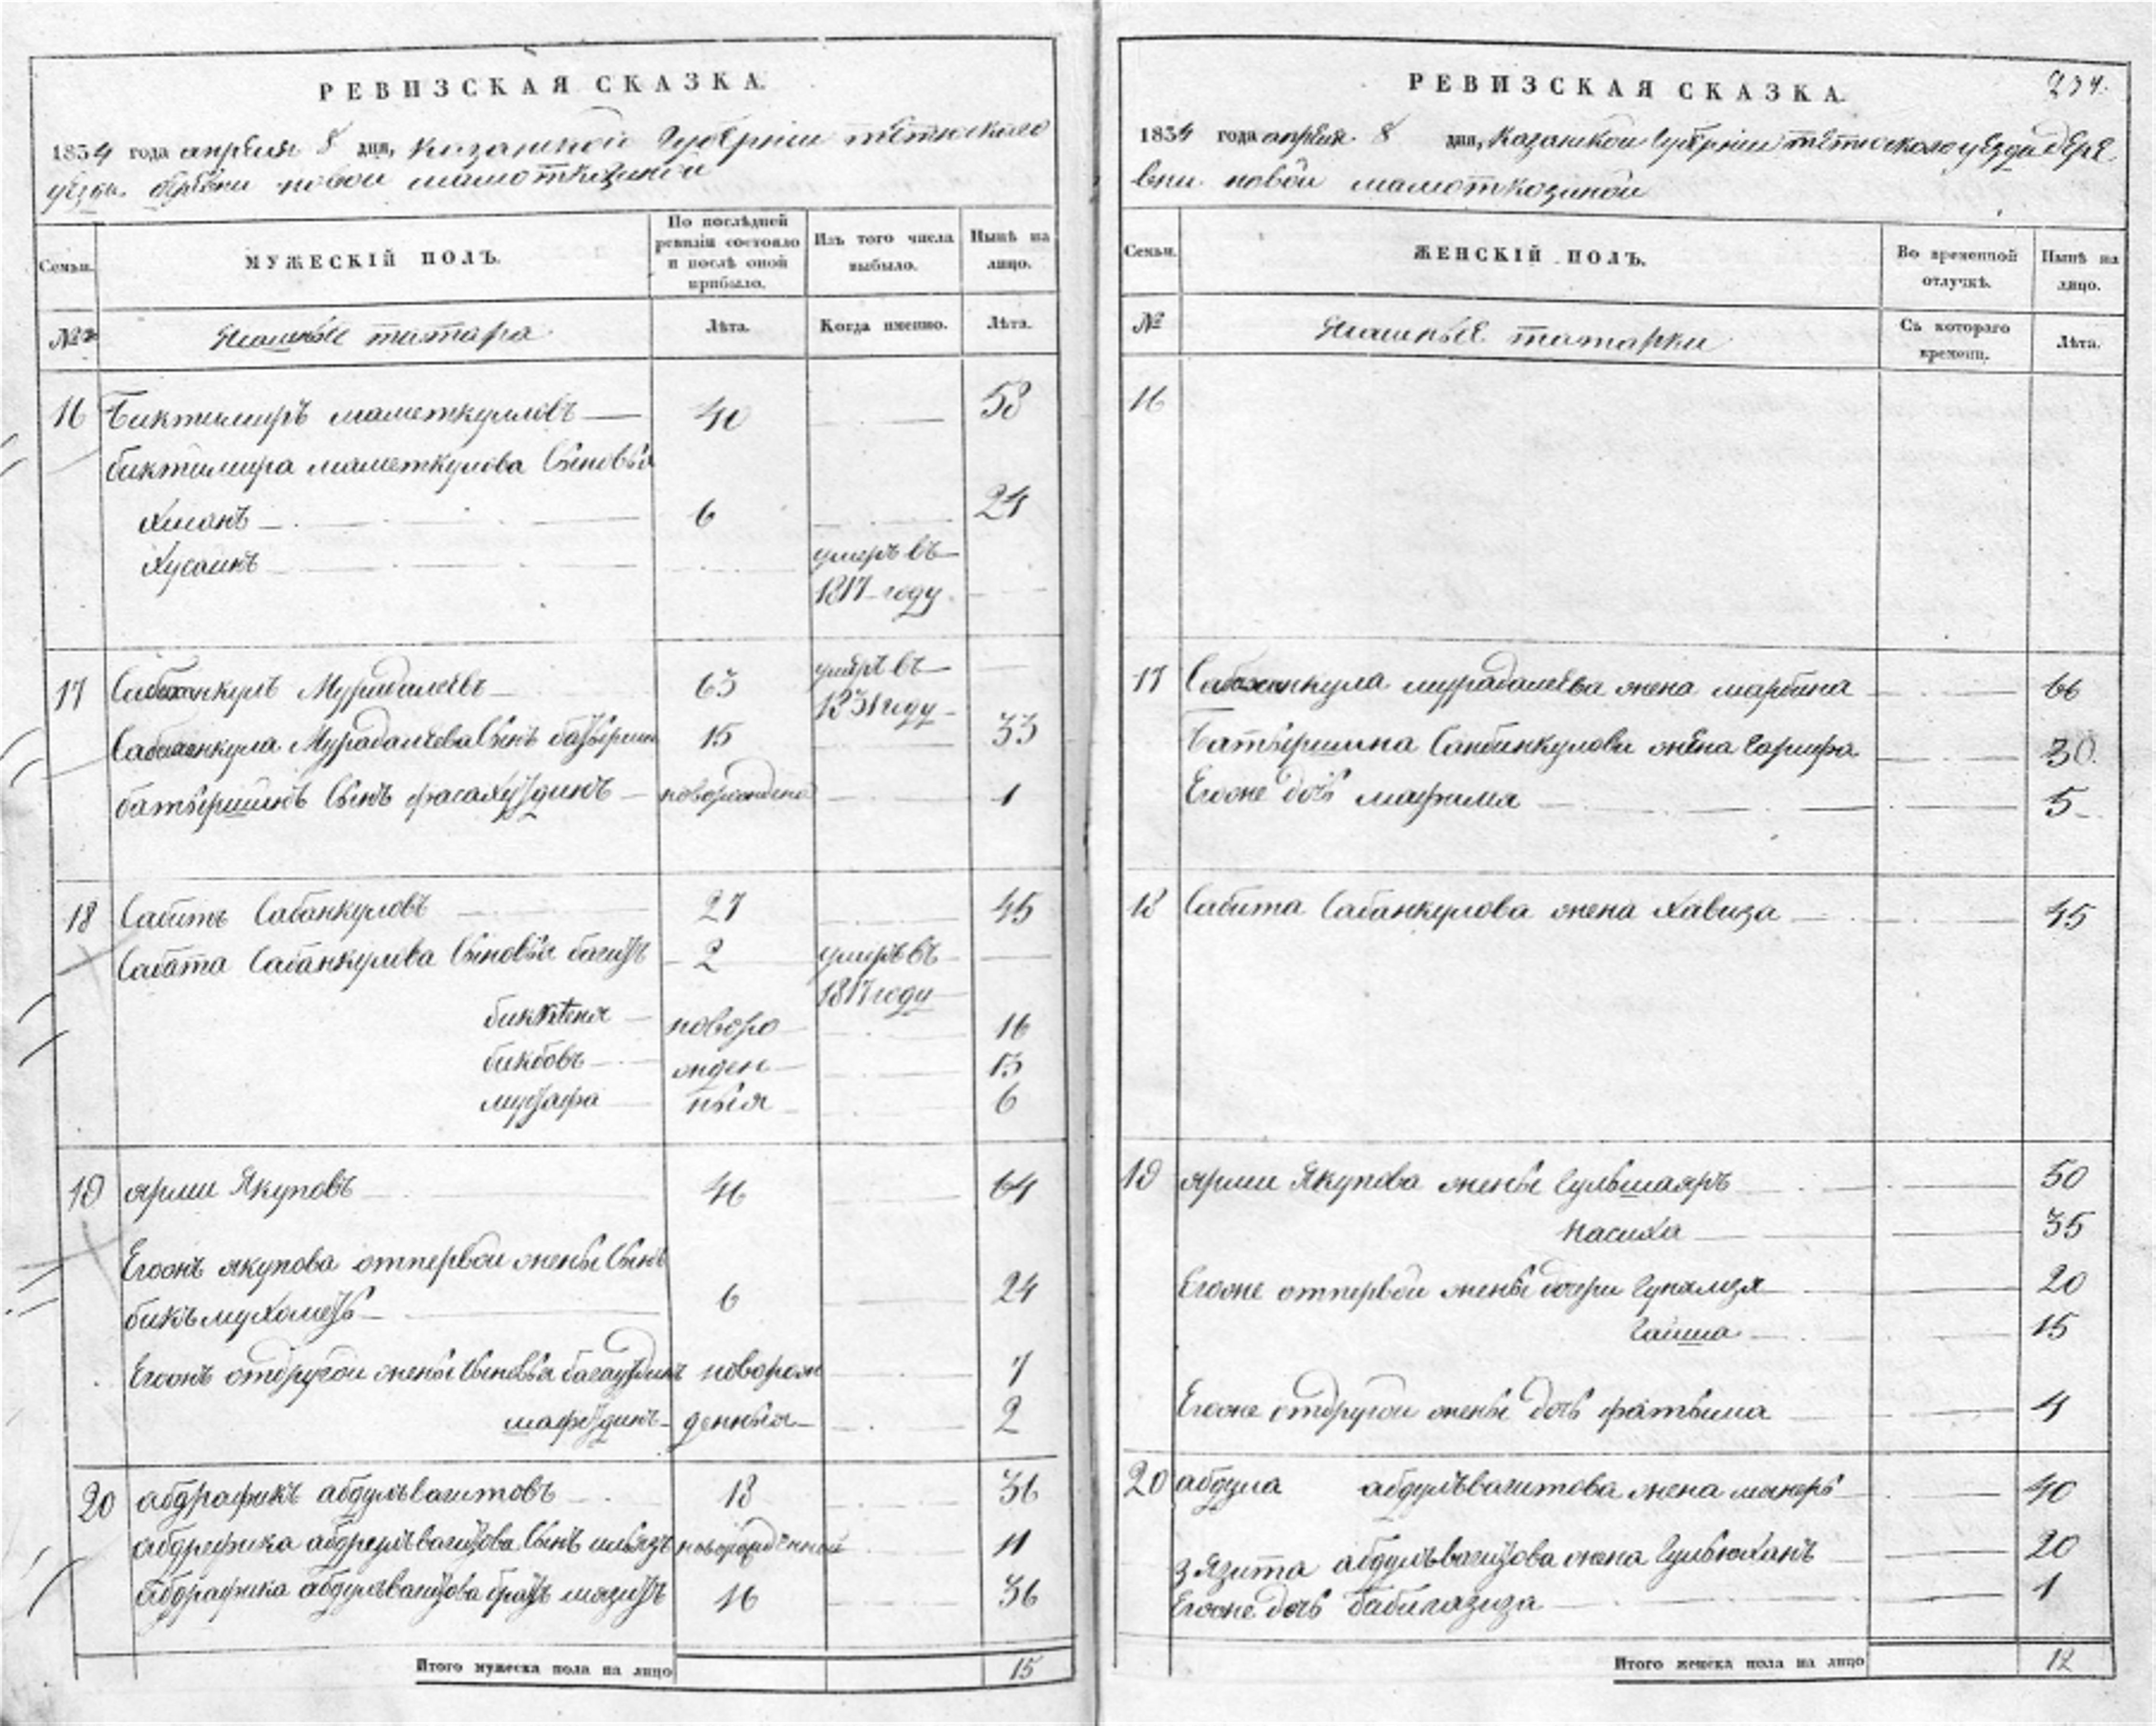 РЕВИЗСКАЯ СКАЗКА.
1834 года апреля 8 дня, казанской губернии тетюскаго
уезда деревни новой маметкозиной
Семьи.
МУЖЕСКІЙ ПОЛЪ.
По послѣдней ревизіи состояло и послѣ оной прибыло.
Изъ того числа выбыло.
Нынѣ на лицо.
№
татара
Лѣта.
Когда именно.
Лѣта.
16 биктимиръ маметкуловъ 40 53
биктимира маметкулова сыновья
хисанъ 6 24
хусаинъ умеръ въ
1817 году
17 Сабанкулъ Мурадалеевъ 63 умеръ въ
1831 году
Сабанкула Мурадалеева сынъ батырша 15 33
батыршинъ сынъ фасахутдинъ новорожденной 1
18 Сабитъ Сабанкуловъ 27 45
Сабита Сабанкулова сыновья багитъ 2 умеръ въ
1817 году
биктеня новоро 16
бикбовъ жден 13
мутафа ныя 6
19 ярми Якуповъ 46 64
Егожъ якупова отпервой жены сынъ
бикъмухаметь 6 24
Егожъ отдругой жены сыновья багаутдинъ новорож 7
шафутдинъ денныя 2
20 абдрафикъ абдулъвагитовъ 18 36
абдрафика абдулъвагитова сынъ ильязъ новорожденной 11
абдрафика абдулъвагитова братъ 16 36
Итого мужеска пола на лицо 15
РЕВИЗСКАЯ СКАЗКА.
234.
1834 года апреля 8 дня, казанской губерніи тетюскаго уезда дере
вни новой маметкозиной
Семьи.
ЖЕНСКІЙ ПОЛЪ.
Во временной отлучкѣ.
Нынѣ на лицо.
№
татарки
Съ котораго времени.
Лѣта.
16
17 Сабанкула мурадалеева жена марбина 66
Батыршина Сабанкулова жена гарифа 30
Егоже дочь мафтиля 5
18 Сабита Сабанкулова жена хавиза 45
19 ярми Якупова жены гульшаяръ 50
насиха 35
Егоже отпервой жены дочери 20
гайша 15
Егоже отдругой жены дочь фатьыма 4
20 абдула абдулъвагитова жена 40
зязита абдулъвагитова жена гульюханъ 20
Егоже дочь бабигазиза 1
Итого женска пола на лицо 12